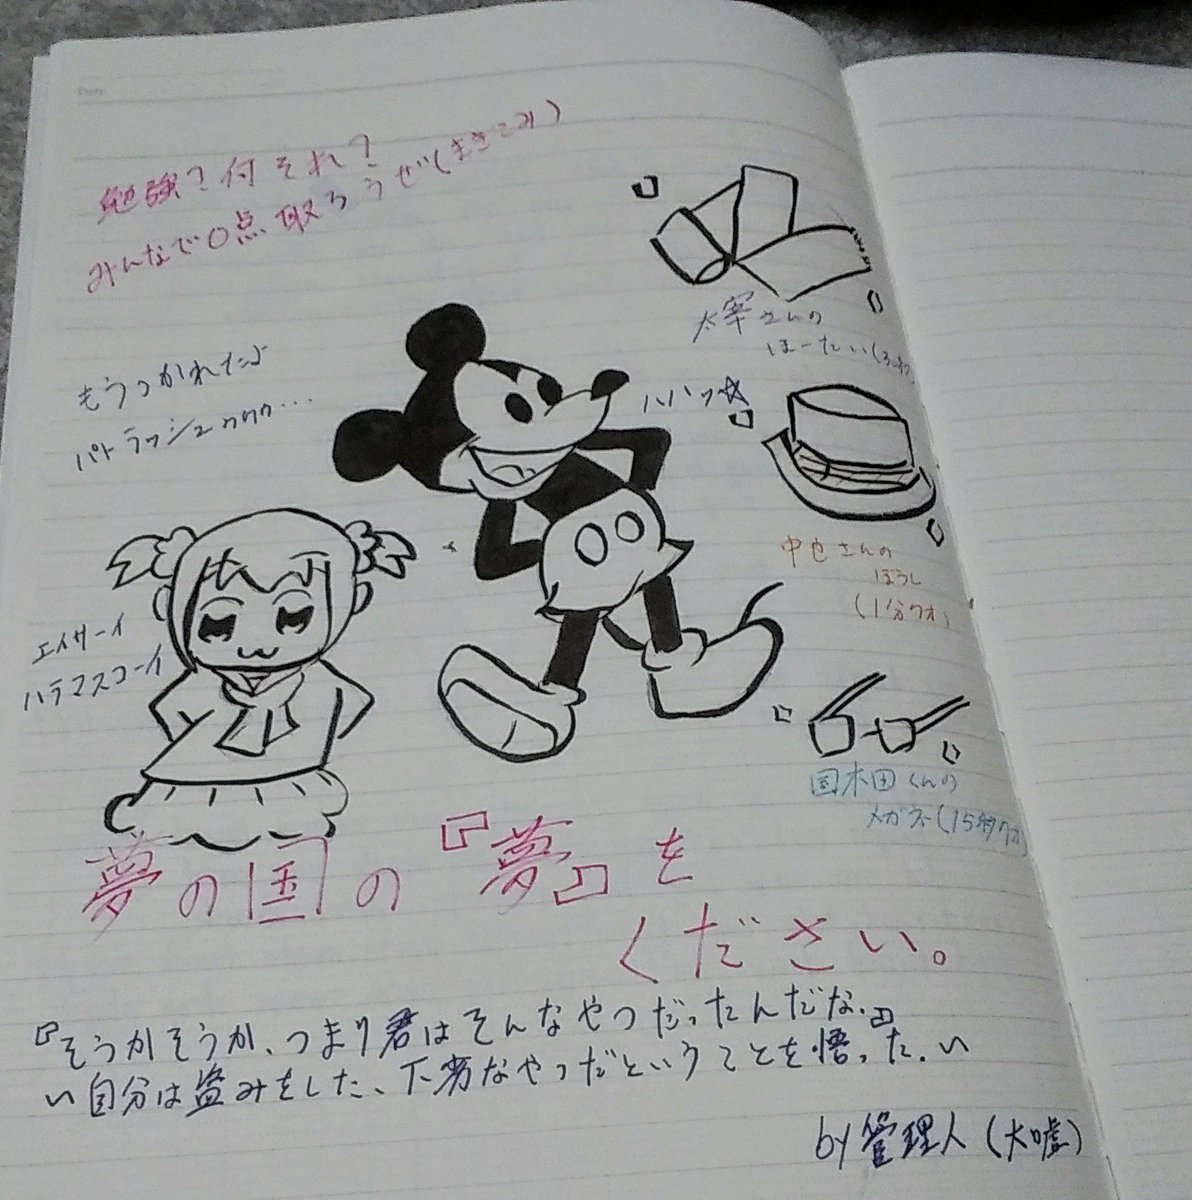 Date
勉強?何それ?
みんなで0点取ろうぜ(まきこみ)
太宰さんの
ほーたい
もうつかれたよ
パトラッシュ
ハハッ☆
中也さんの
ぼうし
(1分クオ)
エイサーイ
ハラマスコーイ
国木田くんの
メガネ(15秒クオ)
夢の国の『夢』を
ください。
『そうかそうか、つまり君はそんなやつだったんだな.』
い自分は盗みをした、下劣なやつだということを悟った.い
by 管理人(大嘘)